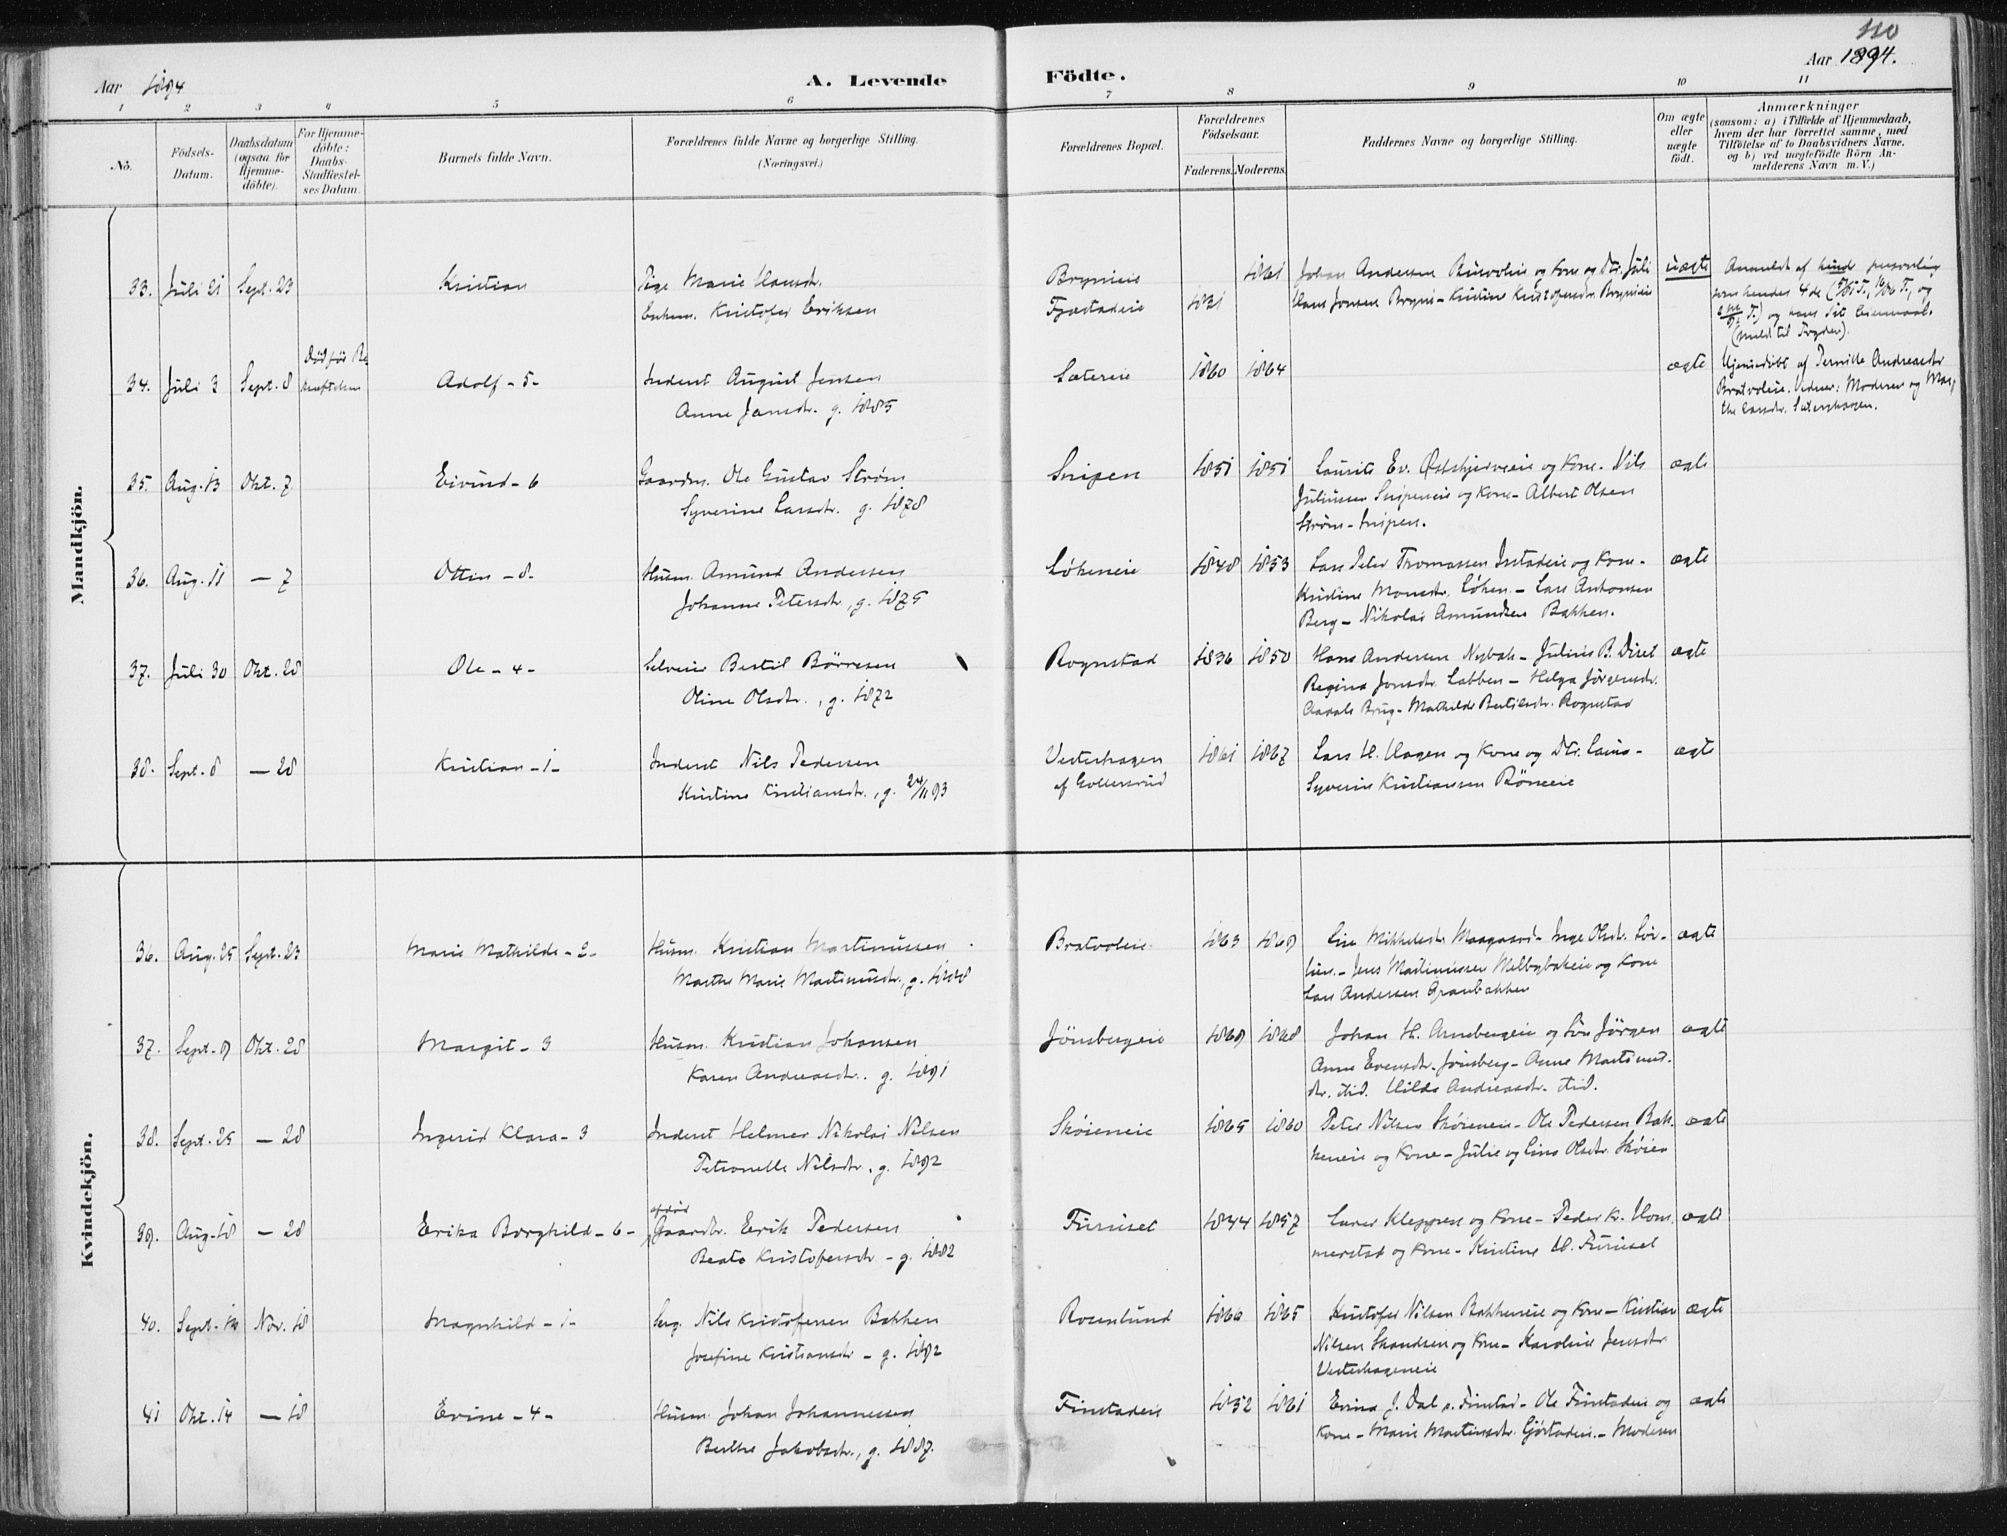 110
Aar 1894
A. Levende
Födte.
Aar 1894.
1 2 3 4 5 6 7 8 9 10 11
No.
Födsels-
Datum.
Daabsdatum
(ogsaa for
Hjemme-
döbte).
For Hjemme-
döbte:
Daabs-
Stadfæstel-
ses Datum.
Barnets fulde Navn.
Forældrenes fulde Navne og borgerlige Stilling.
(Næringsvei.)
Forældrenes Bopæl.
Forældrenes
Födselsaar.
Faderens. Moderens.
Faddernes Navne og borgerlige Stilling.
Om ægte
eller
uægte
födt.
Anmærkninger
(saasom: a) i Tilfælde af Hjemmedaab,
hvem der har forrettet samme, med
Tilföielse af to Daabsvidners Navne,
og b) ved uægtefödte Börn An-
melderens Navn m. V.)
Mandkjön.
33. Juli 21 Sept. 23 Kristian Pige Marie Hansdr. Brynieie 1861 Johan Andersen og Kone og Dtr. Juli uægte Anmeldt af hende personlig
Enkem. Kristofer Eriksen Fjæstadeie 1831 Hans Jonsen Bryni - Kristine Kristofersdr. Brynieie som hendes 4de
34. Juli 3 Sept. 8 Död för Be-
kræftelsen Adolf - 5 - Inderst August Jensen Sætereie 1860 1864 ægte Hjemmedöbt af Pernille Andreasdr
Anne Jansdr. g. 1885 Bratvoleie. Vidner: Moderen og Mar-
the Larsdr. Sætershagen.
35. Aug. 13 Okt. 7 Eivind - 6 Gaardm. Ole Gustav Strøm Snipen 1851 1851 Laurits Ev. og Kone. Nils ægte
Syverine Larsdr. g. 1878 Juliussen Snipeneie og Kone - Albert Olsen
Strøm - Snipen.
36. Aug. 11 — 7 Ottin - 8 - Husm. Amund Andersen Løkeneie 1848 1853 Lars Peter Thomassen og Kone - ægte
Johanne Petersdr., g. 1875 Kristine Monsdr. Løken. - Lars Antonsen
Berg - Nikolai Amundsen Bakken.
37. Juli 30 Okt. 28 Ole - 4 - Selveier Bertil Börresen Rognstad 1836 1850 Hans Andersen Nybak - Julius B. Diset ægte
Oline Olsdtr., g. 1872 Regina Jonsdr. Labben - Helga Jörgensdr.
Aadals Brug - Mathilde Bertilsdr. Rognstad
38. Sept. 8 — 28 Kristian - 1 - Inderst Nils Pedersen Vesterhagen 1861 1867 Lars H. Hagen og Kone og Dtr. Lina - ægte
Kristine Kristiansdr., g. 24/11 93 af Gollersrud Syverin Kristiansen Röneeie
Kvindekjön.
36. Aug. 25 Sept. 23 Marie Mathilde - 2 - Husm. Kristian Martinussen Bratvoleie 1863 1869 Lise Mikkelsdr Maagaard - Inge Olsdr. Lör- ægte
Marthe Marie Martinusdr., g. 1888 lien. - Jens Martinussen Melbybakeie og Kone
Lars Andersen Granbakken
37. Sept. 9 Okt. 28 Margit - 3 Husm. Kristian Johansen Jönsbergeie 1869 1868 Johan H. Arnebergeie og Sön Jörgen ægte
Karen Andreasdr. g. 1891 Anne Evensdr. Jönsberg - Anne Martinus-
dr. ibid. Hilda Andreasdr. ibid.
38. Sept. 25 — 28 Ingerid Klara - 3 Inderst Helmer Nikolai Nilsen Skøieneie 1865 1860 Peter Nilsen Skøieneie - Ole Pedersen Bak- ægte
Petronelle Nilsdr., g. 1892 keneie og Kone - Julie og Lina Olsdr. Skøien
39. Aug. 18 — 28 Erika Borghild - 6 - afdöd
Gaardbr. Erik Pedersen Furuset 1844 1857 Laurs Kleppen og Kone - Peder K. Hom- ægte
Beate Kristofersdr. - g. 1882 merstad og Kone - Kristine H. Furuset
40. Sept. 14 Nov. 18 Magnhild - 1 - Serg. Nils Kristofersen Bakken Rosenlund 1866 1865 Kristofer Nilsen Bakkeneie og Kone - Kristian ægte
Josefine Kristiansdr - g. 1892 Nilsen Skandsen og Kone - Karoline Jensdr
Vesterhageneie
41 Okt. 14 — 18 Evine - 4 - Husm. Johan Johannessen Finstadeie 1852 1861 Evina J. Dal v. Finstad - Ole Finstadeie og ægte
Berthe Jakobsdr., g. 1887. Kone - Marie Martinsdr. - Moderen